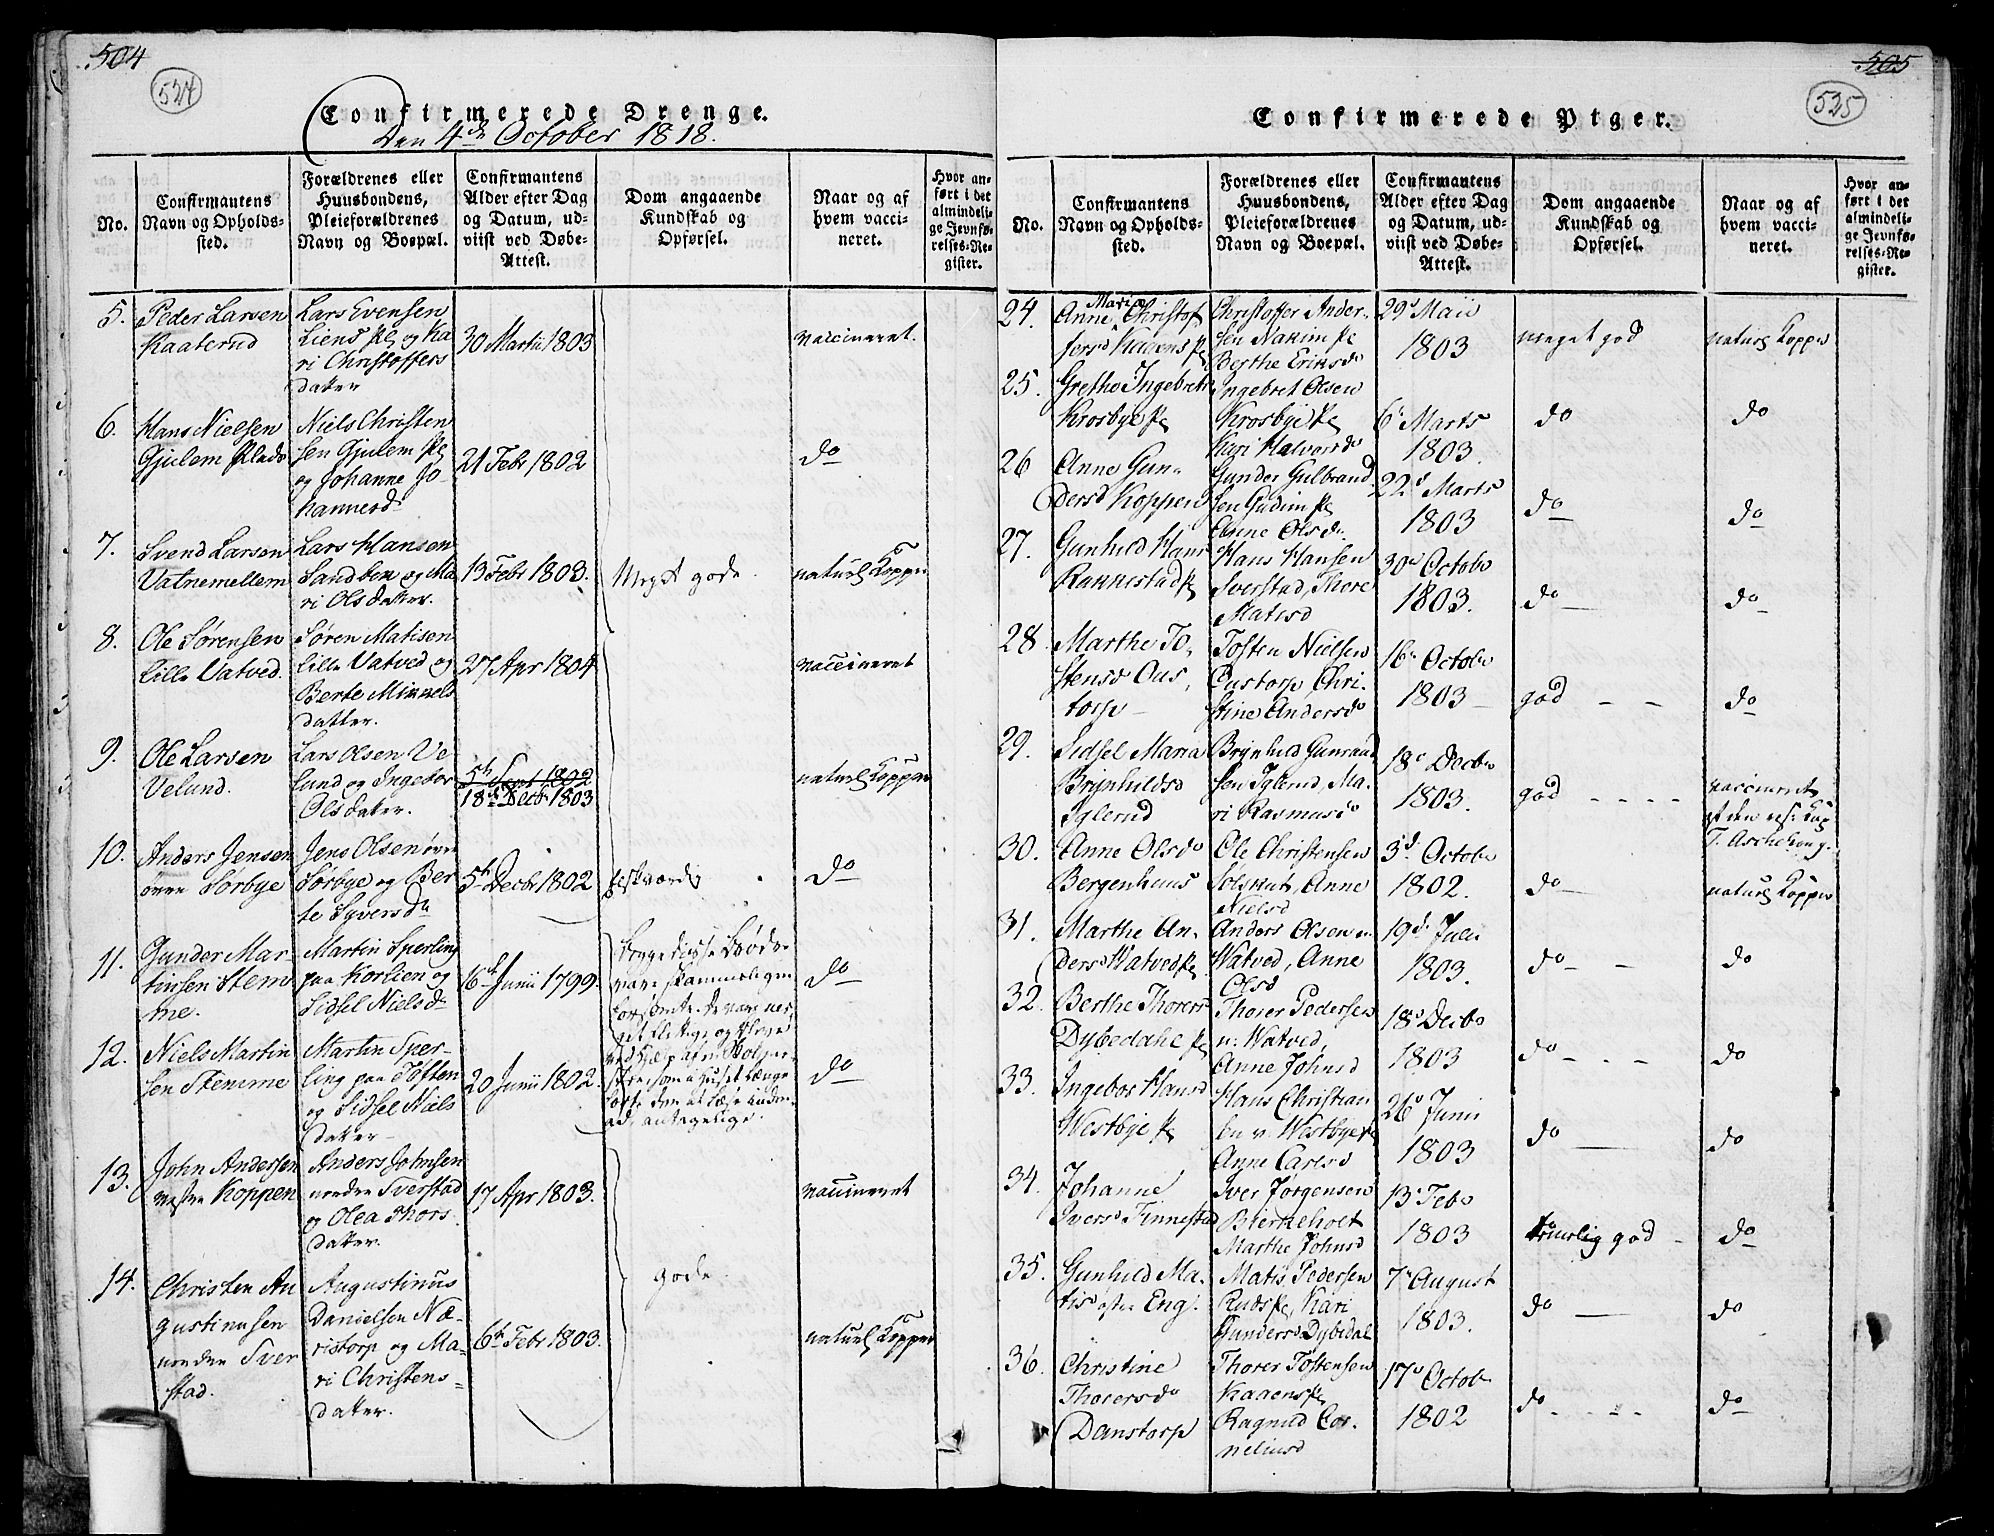 504
524
Confirmerede Drenge.
Den 4de October 1818.
No.
Confirmantens
Navn og Opholds-
sted.
Forældrenes eller
Huusbondens,
Pleieforældrenes
Navn og Boepæl.
Confirmantens
Alder efter Dag
og Datum, ud-
viist ved Døbe-
Attest.
Dom angaaende
Kundskab og
Opførsel.
Naar og af
hvem vacci-
neret.
Hvor an-
ført i det
almindeli-
ge Jevnfø-
relses-Re-
gister.
5.
Peder Larsen
Kaaterud
Lars Evensen
Liens Pl og Ka
ri Christoffers
datter
30 Martii 1803
vaccineret.
6.
Hans Nielsen
Gjulem Plads
Niels Christen
sen Gjulem Pl
og Johanne Jo-
hannesd
21 Febr 1802
do
7.
Svend Larsen
Vatnemellem
Lars Hansen
Sandben og Ma
ri Olsdatter.
13 Febr 1803.
Meget gode.
naturl Kopper
8.
Ole Sørensen
Lille Vatved.
Søren Matisen
Lille Vatved og
Berte Mikkels
datter.
27 Apr 1804
vaccineret
9.
Ole Larsen
Velund.
Lars Olsen Ve
lund og Ingebor
Olsdatter.
5th Sept 1802
18de Decbr 1803
naturl Kopper
10.
Anders Jensen
øvre Sørbye
Jens Olsen øvre
Sørbye og Ber
te Syversd
5th Decbr 1802
do
11.
Gunder Mar-
tinsen Stem
me.
Martin Sperling
paa Korlien og
Sidsel Nielsd
16de Junii 1799.
Begge disse Brødre
vare skammeligen
forsømte. De vare me-
get flittige og bleve
ved Hjelp af
do
12.
Niels Martin
sen Stemme
Martin Sper-
ling paa Tøften
og Sidsel Niels
datter
20 Junii 1802.
som i Huset længe
at læse inden-
ad, antagelige.
do
13.
John Andersen
vestre Koppen
Anders Johnsen
nordre Sverstad
og Olea Thors.
datter.
17 Apr 1803.
vaccineret
14.
Christen Au
gustinusen
nordre Sver
stad.
Augustinus
Danielsen Næ-
ristorp og Ma-
ri Christens-
datter.
6th Febr 1803.
gode
naturl Kopper
505
525
Confirmerede Piger.
No.
Confirmantens
Navn og Opholds-
sted.
Forældrenes eller
Huusbondens,
Pleieforældrenes
Navn og Boepæl.
Confirmantens
Alder efter Dag
og Datum, ud-
viist ved Døbe-
Attest.
Dom angaaende
Kundskab og
Opførsel.
Naar og af
hvem vacci-
neret.
Hvor an-
ført i det
almindeli-
ge Jevnfø-
relses-Re-
gister.
24.
Maria
Anne Christof
fersd Kaaens Pl
Christoffer Ander-
sen Nakim Pl
Berthe Eriksd
29d Maii
1803
meget god
naturl Kopper
25.
Grethe Ingebretsd
Krosbye Pl
Ingebret Olsen
Krosbye Pl
Kari Halvorsd
6 Marts
1803.
do
do
26
Anne Gun-
dersd Koppen
Gunder Gulbrand
sen Gudim Pl
Anne Olsd.
22d Marts
1803
do
do
27.
Gunhild Hans
Rannestad Pl
Hans Hansen
Sverstad, Thore
Matisd
30 Octobr
1803.
do
do
28
Marthe To-
stensd Ous,
torp
Tosten Nielsen
Oustorp, Chri-
stine Andersd
16 Octobr
1803
god
do
29.
Sidsel Maria
Brynhilds
Iglerud
Brynhild Gunraud
sen Iglerud, Ma-
ri Rasmusd
18 Decbr
1803.
god
vaccineret
af den res: Kap
T. Aschehoug.
30.
Anne Olsd
Bergenhuus
Ole Christensen
Solskut, Anne
Nielsd
3d. Octobr
1802.
do
naturl Kopper
31.
Marthe An-
dersd Watved Pl
Anders Olsen
Watved, Anne
Olsd
19d. Julii
1803.
do
do
32.
Berthe Thorers
Dybedahl Pl
Thorer Pedersen
n: Watved,
Anne Johnsd
18 Decbr
1803
do
do
33.
Ingebor Hansd
Westbye Pl
Hans Christian
sen v: Westbye Pl
Anne Carlsd
26 Junii
1803
do
do
34.
Johanne
Iversd Finnestad
Iver Jørgensen
Bierkeholt
Marthe Johnsd
13 Febr
1803
god
do
35.
Gunhild Ma-
tisd østre Eng.
Matis Pedersen
Ruds Pl, Kari
Gundersd Dybedal
7 August
1803.
do
do
36.
Christine
Thorersd
Danstorp
Thorer Tostensen
Kaaens Pl
Ragnild Cor-
neliusd
17 Octobr
1802
do
do